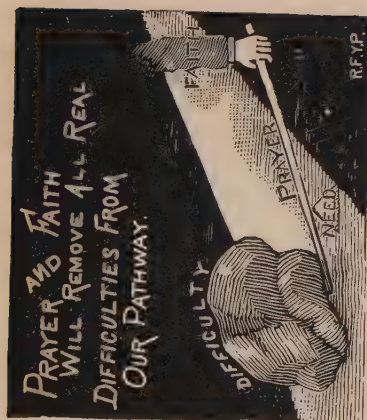 PRAYER AND FAITH
WILL REMOVE ALL REAL
DIFFICULTIES FROM
OUR PATHWAY.
FAITH
DIFFICULTY
PRAYER
NEED
R.F.Y.P.